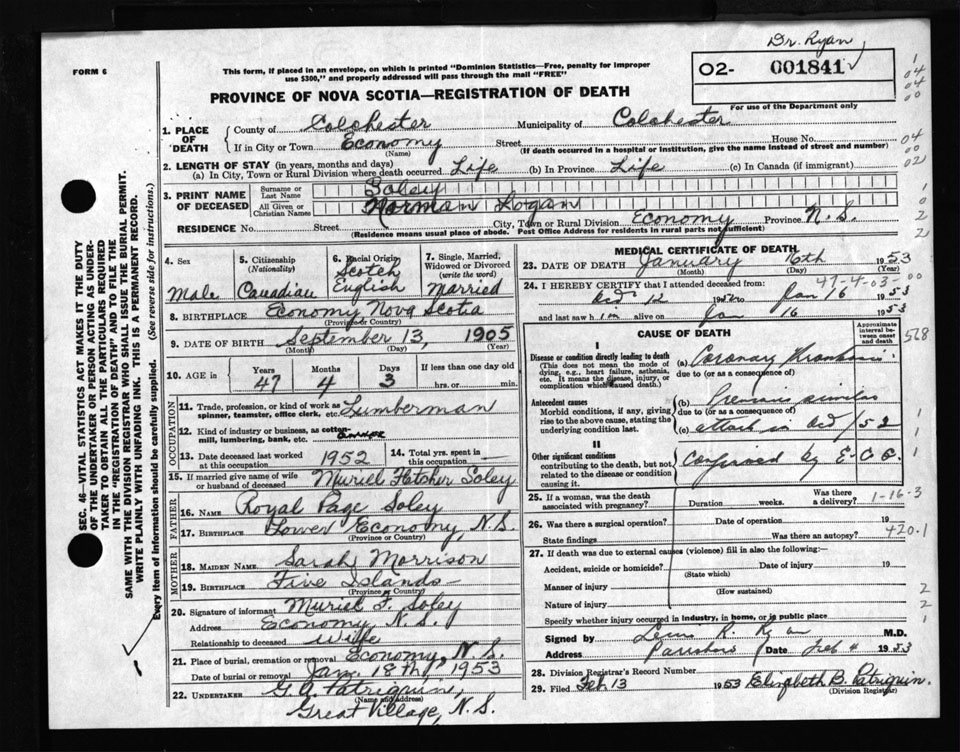 Dr. Ryan
FORM 6
This form, if placed in an envelope, on which is printed "Dominion Statistics—Free, penalty for improper
use $300," and properly addressed will pass through the mail "FREE"
02- 001841
PROVINCE OF NOVA SCOTIA—REGISTRATION OF DEATH
For use of the Department only
1. PLACE OF DEATH
County of Colchester Municipality of Colchester
If in City or Town Economy Street House No.
(Name) (If death occurred in a hospital or institution, give the name instead of street and number)
2. LENGTH OF STAY (in years, months and days)
(a) In City, Town or Rural Division where death occurred Life (b) In Province Life (c) In Canada (if immigrant)
3. PRINT NAME OF DECEASED
Surname or Last Name Soley
All Given or Christian Names Norman Logan
RESIDENCE No. Street City, Town or Rural Division Economy Province N.S.
(Residence means usual place of abode. Post Office Address for residents in rural parts not sufficient)
4. Sex Male
5. Citizenship (Nationality) Canadian
6. Racial Origin Scotch English
7. Single, Married, Widowed or Divorced (write the word) Married
8. BIRTHPLACE Economy Nova Scotia
(Province or Country)
9. DATE OF BIRTH September 13, 1905
(Month) (Day) (Year)
10. AGE in Years 47 Months 4 Days 3 If less than one day old hrs. or min.
OCCUPATION
11. Trade, profession, or kind of work as spinner, teamster, office clerk, etc. Lumberman
12. Kind of industry or business, as cotton-mill, lumbering, bank, etc.
13. Date deceased last worked at this occupation 1952
14. Total yrs. spent in this occupation —
15. If married give name of wife or husband of deceased Muriel Fletcher Soley
FATHER
16. NAME Royal Page Soley
17. BIRTHPLACE Lower Economy, N.S.
(Province or Country)
MOTHER
18. MAIDEN NAME Sarah Morrison
19. BIRTHPLACE Five Islands —
(Province or Country)
20. Signature of informant Muriel F. Soley
Address Economy N.S.
Relationship to deceased wife
21. Place of burial, cremation or removal Economy N.S.
Date of burial or removal Jan. 18th, 1953
22. UNDERTAKER G. Patriquin,
(Name and Address)
Great Village, N.S.
MEDICAL CERTIFICATE OF DEATH
23. DATE OF DEATH January 16th 1953
(Month) (Day) (Year)
47-4-03
24. I HEREBY CERTIFY that I attended deceased from:
Oct 12 1952 to Jan 16 1953
and last saw him alive on Jan 16 1953
CAUSE OF DEATH
Approximate interval between onset and death
I
Disease or condition directly leading to death
(This does not mean the mode of dying, e.g., heart failure, asthenia, etc. It means the disease, injury, or complication which caused death.)
(a) Coronary Thrombosis
due to (or as a consequence of)
Antecedent causes
Morbid conditions, if any, giving rise to the above cause, stating the underlying condition last.
(b) Previous similar
due to (or as a consequence of)
(c) attack in Oct/52
II
Other significant conditions
contributing to the death, but not related to the disease or condition causing it.
Confirmed by E.C.G.
25. If a woman, was the death associated with pregnancy? Duration weeks. Was there a delivery?
1-16-3
26. Was there a surgical operation? Date of operation 19
State findings Was there an autopsy?
420.1
27. If death was due to external causes (violence) fill in also the following:
Accident, suicide or homicide? Date of injury 19
(State which)
Manner of injury
(How sustained)
Nature of injury
Specify whether injury occurred in industry, in home, or in public place
Signed by Lewis R. Ryan M.D.
Address Parrsboro Date Feb 4 1953
28. Division Registrar's Record Number
29. Filed Feb 13 1953 Elizabeth B. Patriquin.
(Division Registrar)
SEC. 46—VITAL STATISTICS ACT MAKES IT THE DUTY
OF THE UNDERTAKER OR PERSON ACTING AS UNDER-
TAKER TO OBTAIN ALL THE PARTICULARS REQUIRED
IN THE "REGISTRATION OF DEATH" AND TO FILE THE
SAME WITH THE DIVISION REGISTRAR WHO SHALL ISSUE THE BURIAL PERMIT.
WRITE PLAINLY WITH UNFADING INK. THIS IS A PERMANENT RECORD.
Every item of information should be carefully supplied. (See reverse side for instructions.)